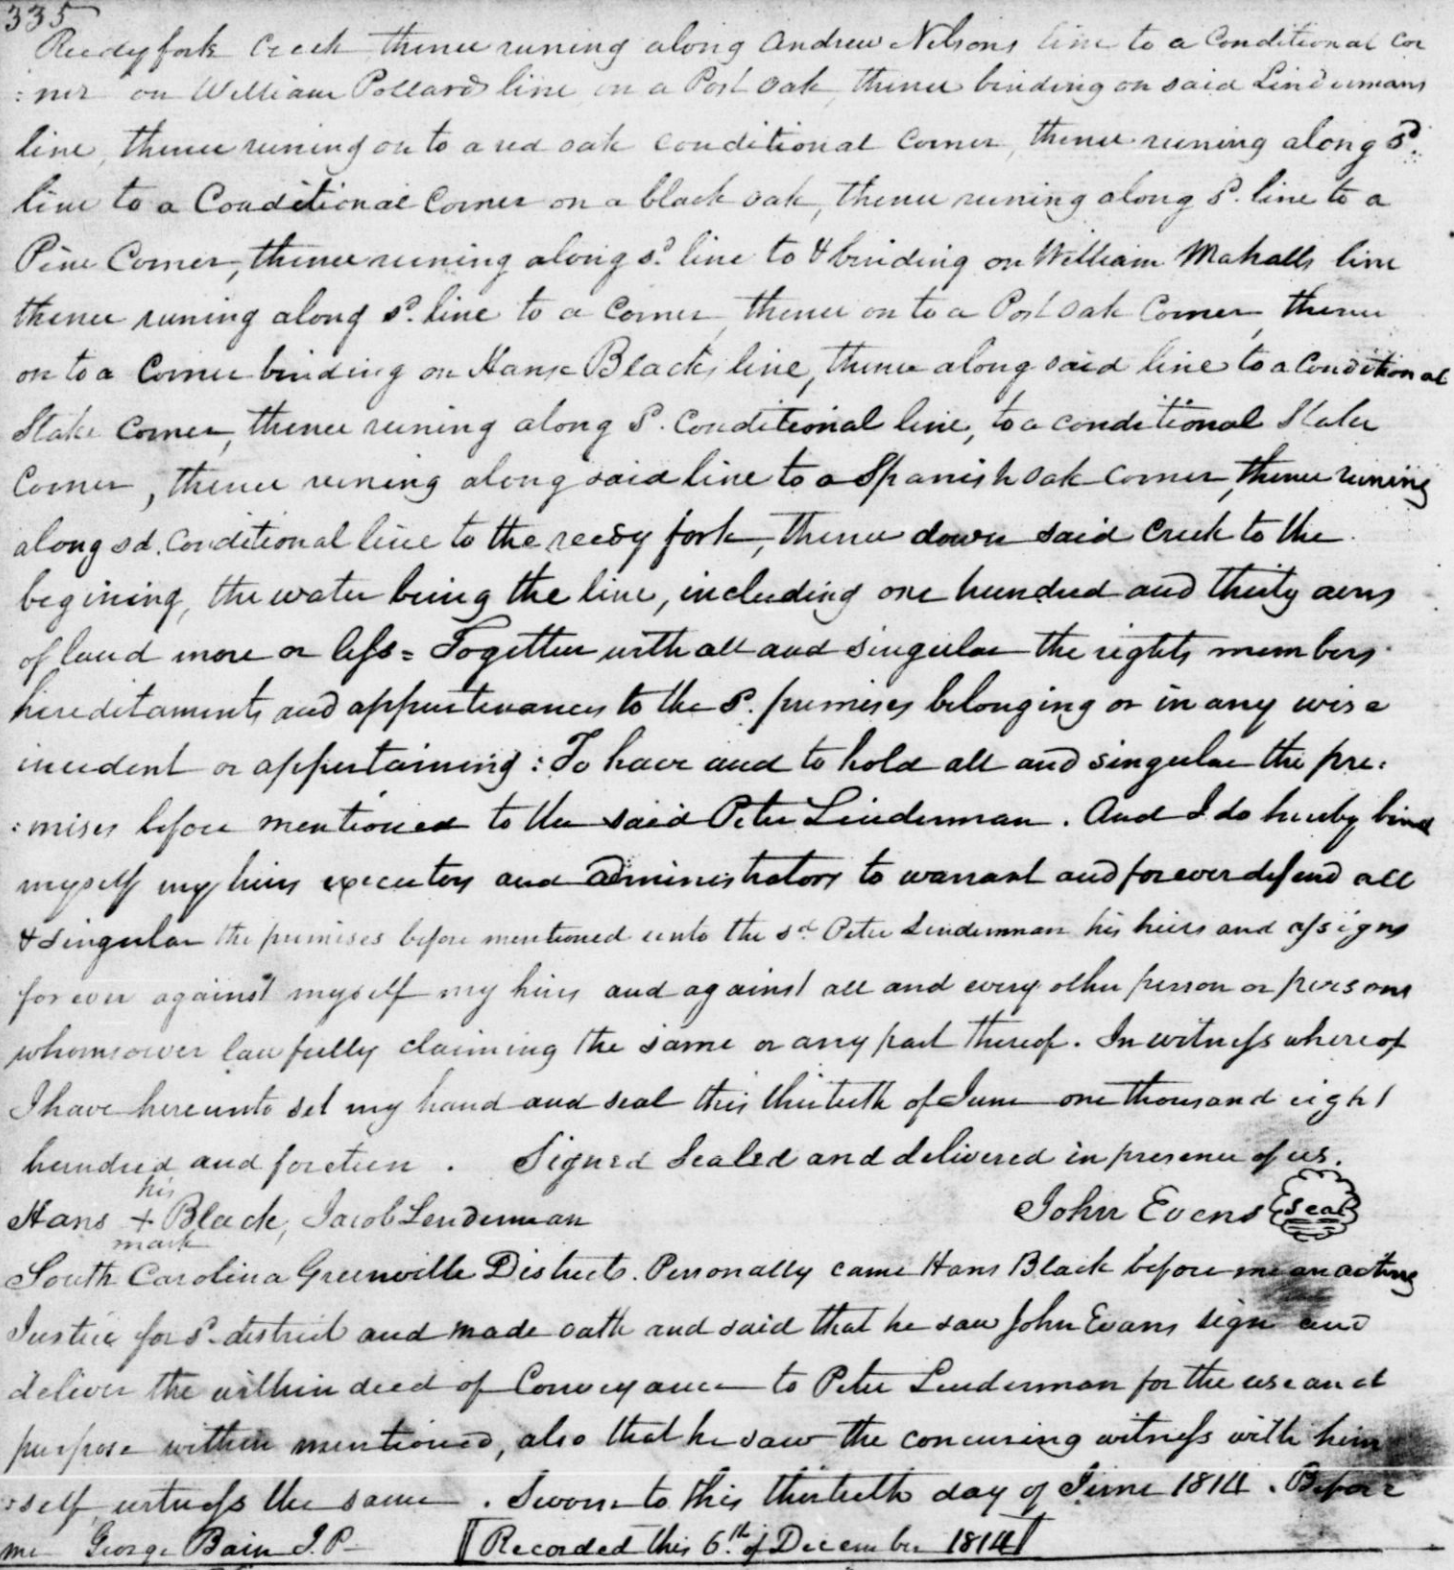 335
Reedyfork Creek thence runing along Andrew Nelsons line to a Conditional cor
:ner on William Pollard line on a Post oak, thence binding on said Lindermans
line, thence runing on to a red oak conditional corner, thence runing along sd.
line to a Conditional Corner on a black oak, thence runing along sd. line to a
Pine Corner, thence runing along sd. line to & binding on William Mahaffs line
thence runing along sd. line to a Corner, thence on to a Post oak Corner, thence
on to a Corner binding on Hans Blacks line, thence along said line to a Conditional
Stake Corner, thence runing along sd. Conditional line, to a conditional Stake
Corner, thence runing along said line to a Spanish oak corner, thence runing
along sd. Conditional line to the reedy fork, thence down said Creek to the
begining, the water being the line, including one hundred and thirty acres
of land more or less = Together with all and singular the rights members
hereditaments and appurtenances to the sd. premises belonging or in any wise
incident or appertaining : To have and to hold all and singular the pre:
:mises before mentioned to the said Peter Linderman. And I do hereby bind
myself my heirs executors and administrators to warrant and forever defend all
& singular the premises before mentioned unto the sd. Peter Linderman his heirs and assigns
forever against myself my heirs and against all and every other person or persons
whomsoever lawfully claiming the same or any part thereof. In witness whereof
I have hereunto set my hand and seal this thirtieth of June one thousand eight
hundred and foreteen . Signed Sealed and delivered in presence of us.
his
Hans + Black, Jacob Lenderman John Evens Seal
mark
South Carolina Greenville District. Personally came Hans Black before me an acting
Justice for sd. district and made oath and said that he saw John Evans sign and
deliver the within deed of Conveyance to Peter Linderman for the use and
purpose within mentioned, also that he saw the concuring witness with him
:self witness the same . Sworn to this thirtieth day of June 1814. Before
me George Bain J.P. [Recorded this 6th. of December 1814]